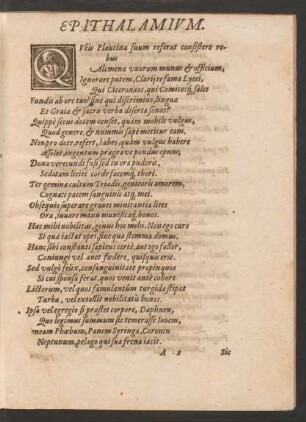 EPITHALAMIVM.
QVbis Plautina suum referat consistere re-
bus
Alcmena vxorum munus & officium,
Ignorare putem, Clariq; te fama Lycei,
Qui Ciceronæos, qui Comicosq; sales
Fundis ab ore tuo, sine qui discrimine, linguæ
Et Graia & sacra verba diserta sonas?
Quippe secus dotem censet, quàm mobile vulgus,
Quod genere, & nummis sæpè metitur eam.
Non pro dote, refert, habeo, quàm vulgus habere
Assolet argentum prægraue pondus opum;
Dona verecundi fulsed in ora pudoris,
Sedatam liceit corde facemq; thori.
Tergeminæ cultum Triadis, genitoris amorem,
Cognati pacem sanguinis atq; mei.
Obsequio superare graues minitantia lites
Ora, iuuare manu munificaq; bonos.
Hæc mihi nobilitas, genus hoc mihi. Non ego curo
Si qua iactat opes, sine qua stemma domus.
Hanc sibi constantis sapiens certè, aut ego fallor,
Coniungi vel auet fœdere, quisquis erit.
Sed vulgò felix, consanguinitate propinquos
Si cui sponsa ferat, quos venit ante cohors
Lictorum, vel quos famulantûm turgida stipat
Turba, vel extollit nobilitatis honos.
Ipsa vel egregio si præstet corpore, Daphnen,
Quo legimus summum sic temerasse Iouem,
neam Phœbum, Panem Syringa, Coronin
Neptunum, pelago qui sua frena iacit.
A 2 Sic